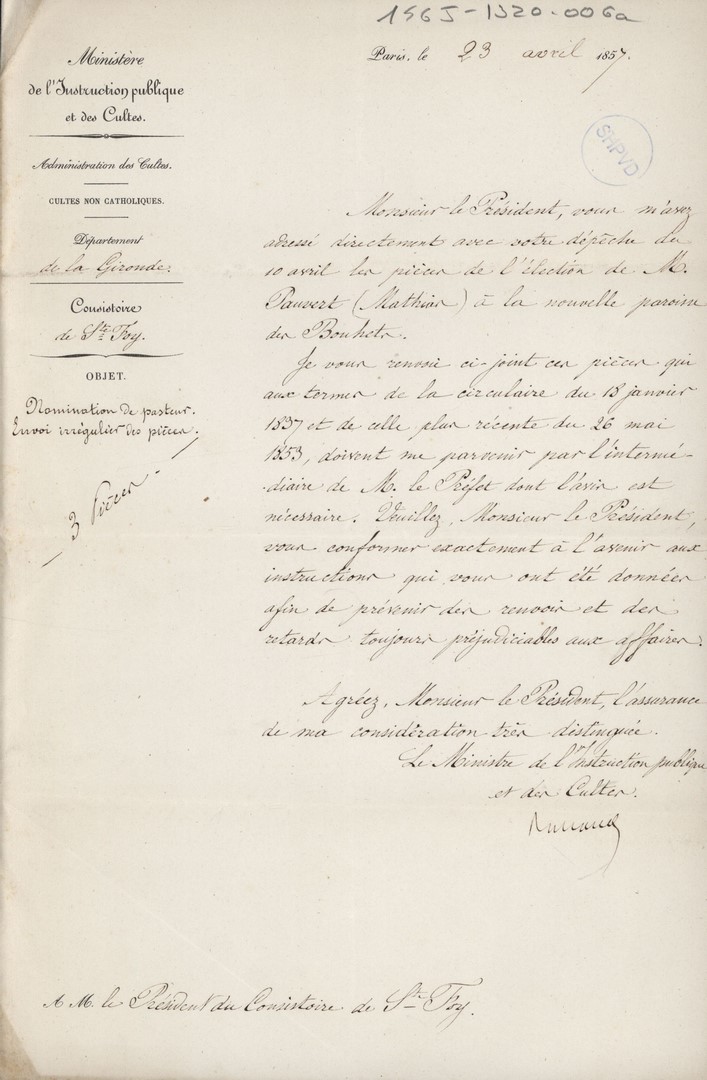 156J-1J20-006a
Ministère
de l'Instruction publique
et des Cultes.
Administration des Cultes.
CULTES NON CATHOLIQUES.
Département
de la Gironde.
Consistoire
de Ste Foy.
OBJET.
Nomination de pasteur.
Envoi irrégulier des pièces.
3 Pièces.
Paris, le 23 avril 1857.
SHPVD
Monsieur le Président, vous m'avez
adressé directement avec votre dépêche du
10 avril les pièces de l'élection de M.
Pauvert (Mathias) à la nouvelle paroisse
des Bouhets.
Je vous renvoie ci-joint ces pièces qui
aux termes de la circulaire du 18 janvier
1837 et de celle plus récente du 26 mai
1853, doivent me parvenir par l'intermé-
-diaire de M. le Préfet dont l'avis est
nécessaire. Veuillez, Monsieur le Président,
vous conformer exactement à l'avenir aux
instructions qui vous ont été données
afin de prévenir des renvois et des
retards toujours préjudiciables aux affaires.
Agréez, Monsieur le Président, l'assurance
de ma considération très distinguée.
Le Ministre de l'Instruction publique
et des Cultes.
A M. le Président du Consistoire de Ste Foy.